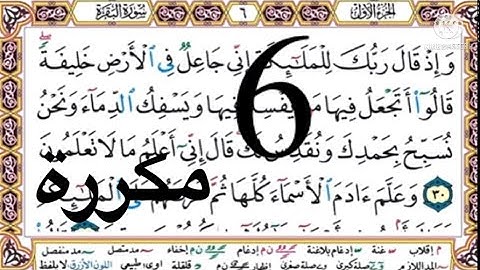 الجزء الأول ٦ سورة البقرة
وَإِذْ قَالَ رَبُّكَ لِلْمَلَٰٓئِكَةِ إِنِّي جَاعِلٌ فِي ٱلْأَرْضِ خَلِيفَةً
قَالُوٓا۟ أَتَجْعَلُ فِيهَا مَن يُفْسِدُ فِيهَا وَيَسْفِكُ ٱلدِّمَآءَ وَنَحْنُ
نُسَبِّحُ بِحَمْدِكَ وَنُقَدِّسُ لَكَ قَالَ إِنِّيٓ أَعْلَمُ مَا لَا تَعْلَمُونَ
٣٠ وَعَلَّمَ ءَادَمَ ٱلْأَسْمَآءَ كُلَّهَا ثُمَّ
6
مكررة
م إقلاب س غنة س إدغام بلاغنة ن م إدغام ن م إخفاء مد متصل مد منفصل